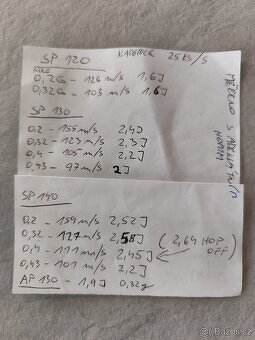 SP 120 KADENCE 25KS/S
KULE
0,2G - 126 m/s 1,6J
0,32G - 103 m/s 1.6J
SP 130
0.2 - 155 m/s 2,4J
0,32 - 123 m/s 2,3J
0,4 - 105 m/s 2,2J
0,43 - 97 m/s 2J
SP 140
0,2 - 159 m/s 2,52J
0,32 - 127 m/s 2,58J
0,4 - 111 m/s 2,45J
0,43 - 101 m/s 2,2J
AP 130 - 1,9J 0,32g
(2,64 HOP
OFF)
MĚŘENO S
HOPEM